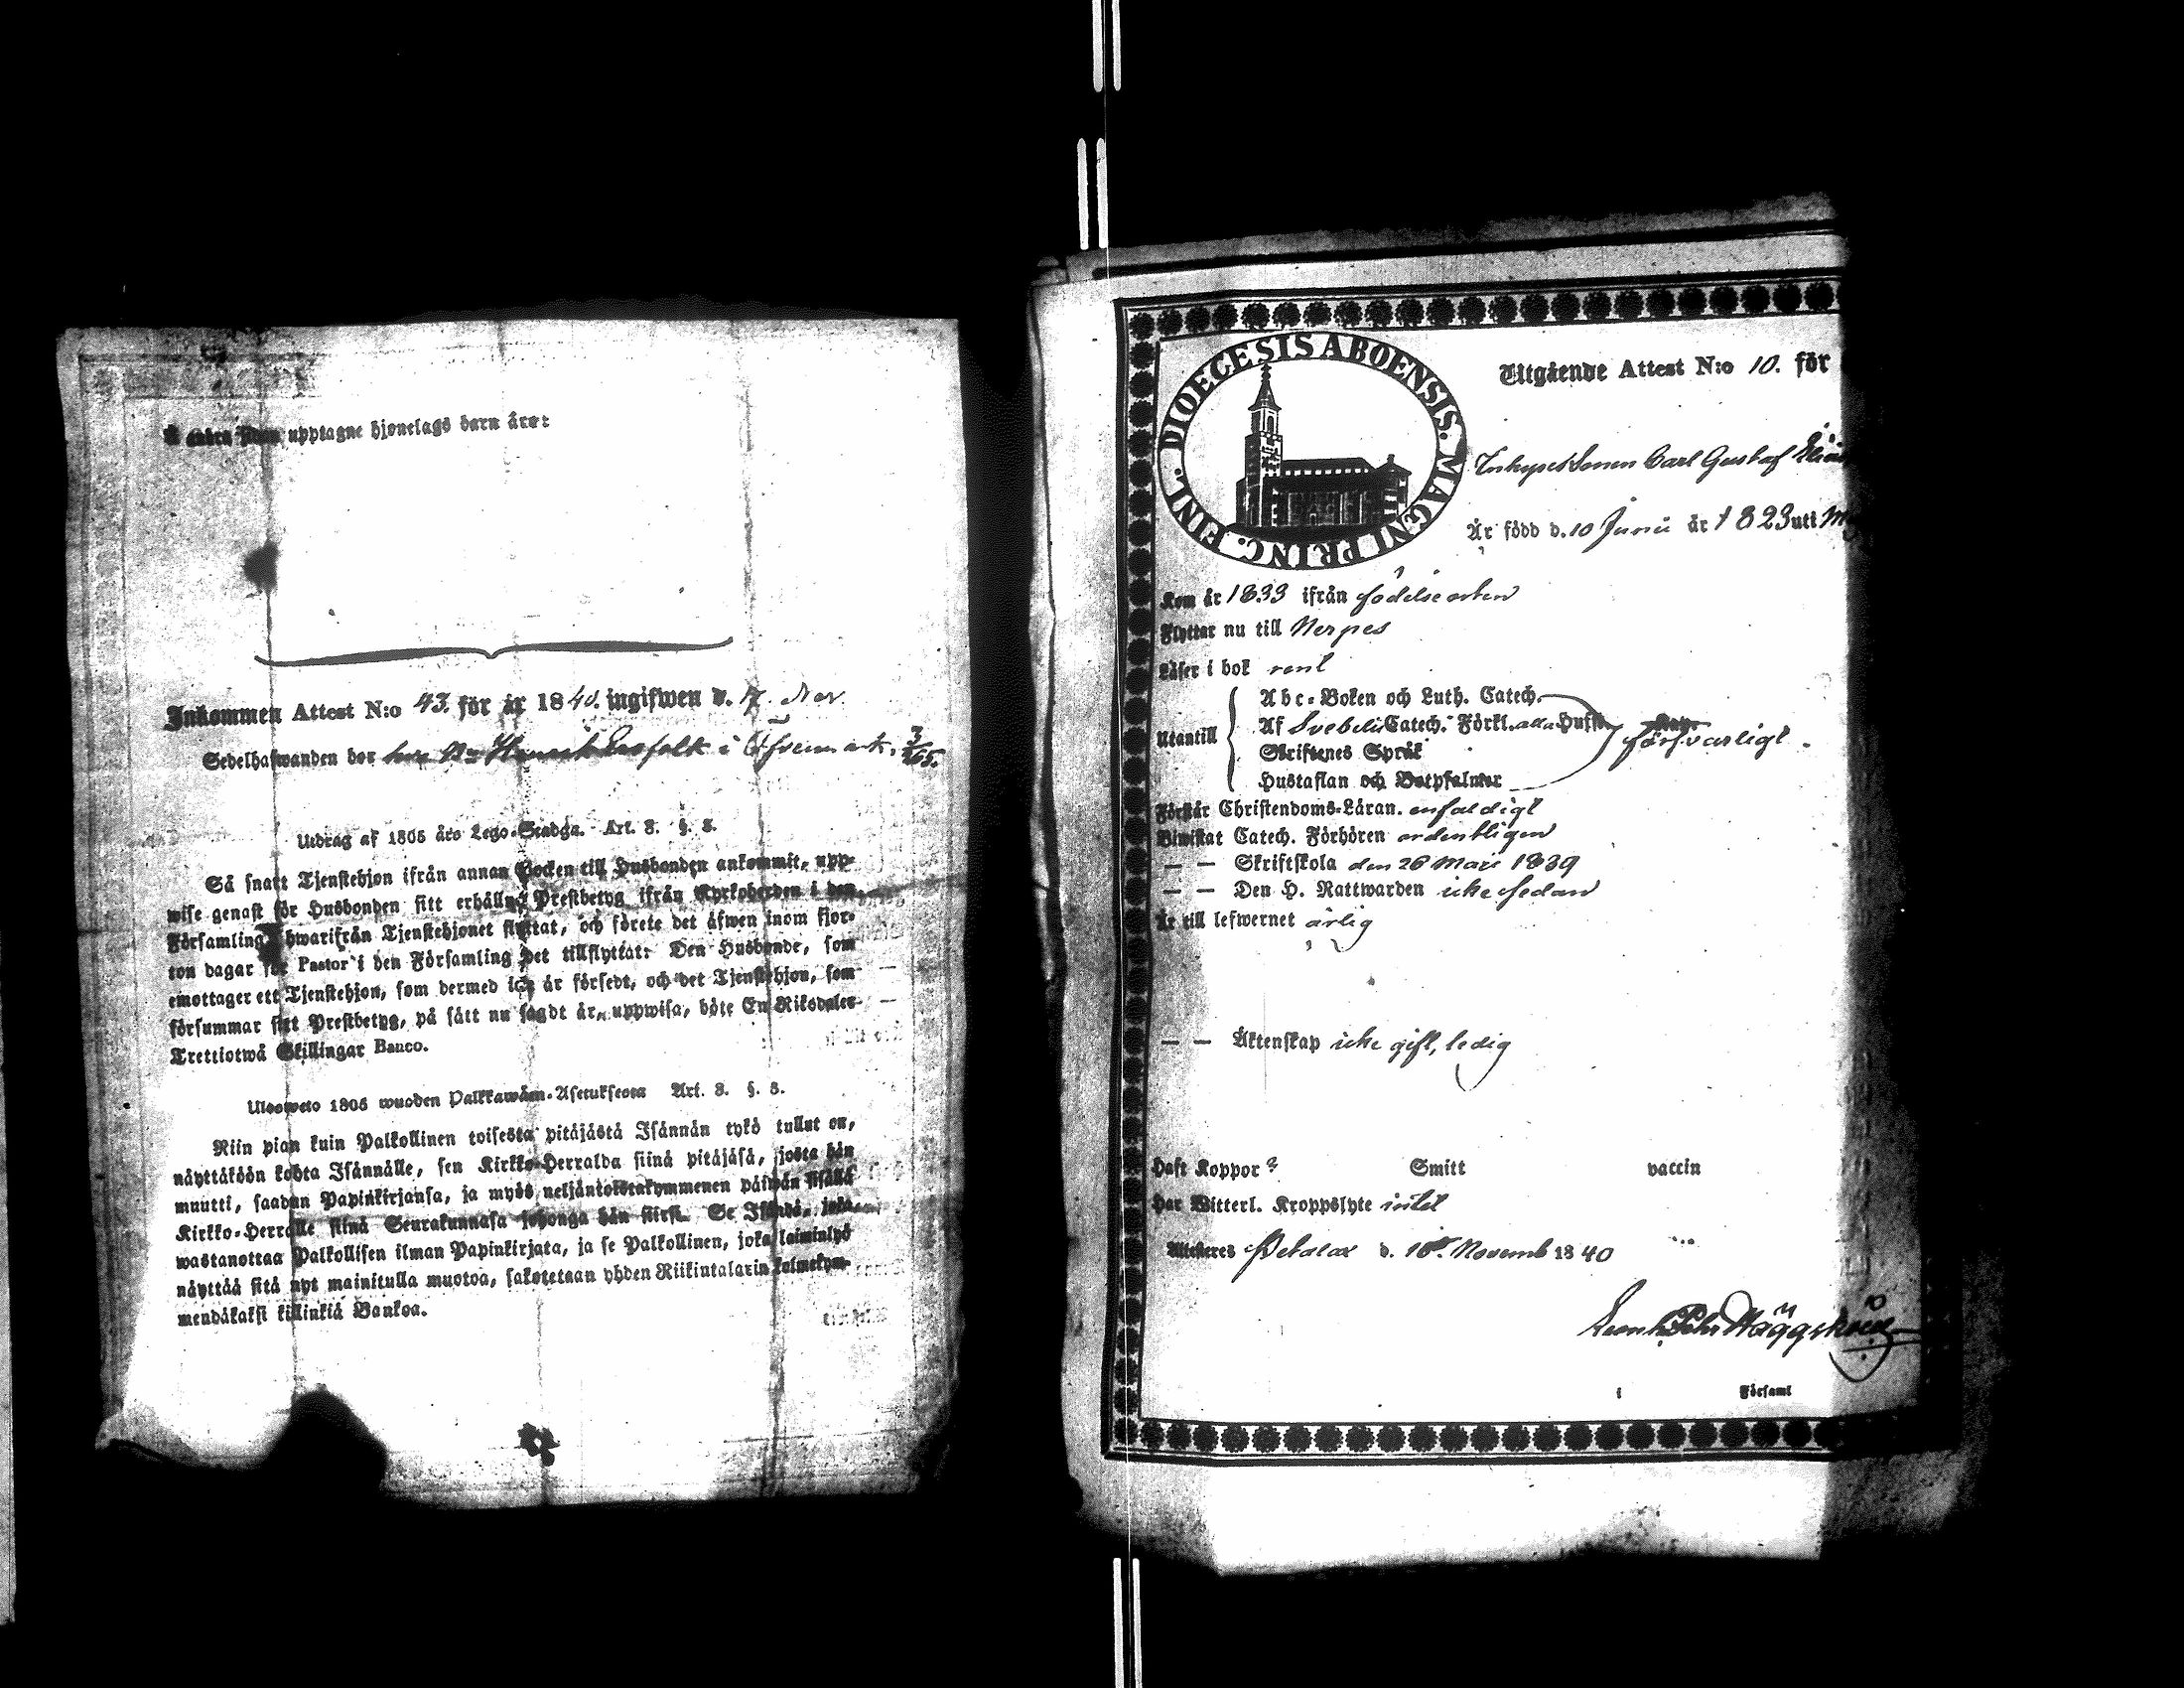 andra sidan upptagne hjonelags barn äro:
Inkommen Attest N:o 43. för år 1840. ingifwen d. 17 Nov.
Sedelhafwanden bor hos Henrik i Öfvermark, 3/265.
Utdrag af 1805 års Lego-Stadga. Art. 3. §. 8.
Så snart Tjenstehjon ifrån annan Socken till Husbonden ankommit, upp-
wise genast för Husbonden sitt erhållna Prestbetyg ifrån Kyrkoherden i den
Församling hwarifrån Tjenstehjonet flyttat, och förete det äfwen inom fjor-
ton dagar för Pastor i den Församling det tillflyttat: Den Husbonde, som
emottager ett Tjenstehjon, som dermed icke är försedt, och det Tjenstehjon, som
försummar sitt Prestbetyg, på sätt nu sagdt är, uppwisa, böte En Riksdaler
Trettiotwå Skillingar Banco.
Ulosweto 1805 wuoden Palkkawäen-Asetuksesta Art. 3. §. 8.
Niin pian kuin Palkollinen toisesta pitäjästä Isännän tykö tullut on,
näyttäköön kohta Isännälle, sen Kirkko-Herralda siinä pitäjäsä, josta hän
muutti, saadun Papinkirjansa, ja myös neljäntoistakymmenen päiwän sisällä
Kirkko-Herralle siinä Seurakunnasa johonga hän siirsi. Se Isändä, joka
wastanottaa Palkollisen ilman Papinkirjata, ja se Palkollinen, joka laiminlyö
näyttää sitä nyt mainitulla muotoa, sakotetaan yhden Riikintalarin kolmekym-
mendäkaksi killinkiä Bankoa.
DIOECESIS ABOENSIS. MAGNI PRINC. FINL.
Utgående Attest N:o 10. för
Carl Gustaf
Är född d. 10 Junii år 1823 uti
Kom år 1833 ifrån födelseorten
Flyttar nu till Nerpes
Läser i bok rent
Utantill
Abc-Boken och Luth. Catech.
Af Svebelii Catech. Förkl. alla Hufst.
Skriftenes Språk
Hustaflan och Botpsalmer
försvarligt.
Förstår Christendoms-Läran. enfaldigt
Biwistat Catech. Förhören ordentligen
— — Skriftskola den 26 Mars 1839
— — Den H. Nattwarden icke sedan
Är till lefwernet ärlig
— — Äktenskap icke gift, ledig
Haft Koppor? Smitt vaccin
Har Witterl. Kroppslyte intet
Attesteres Petalax d. 16 Novemb 1840
Häggsköld
i Församl